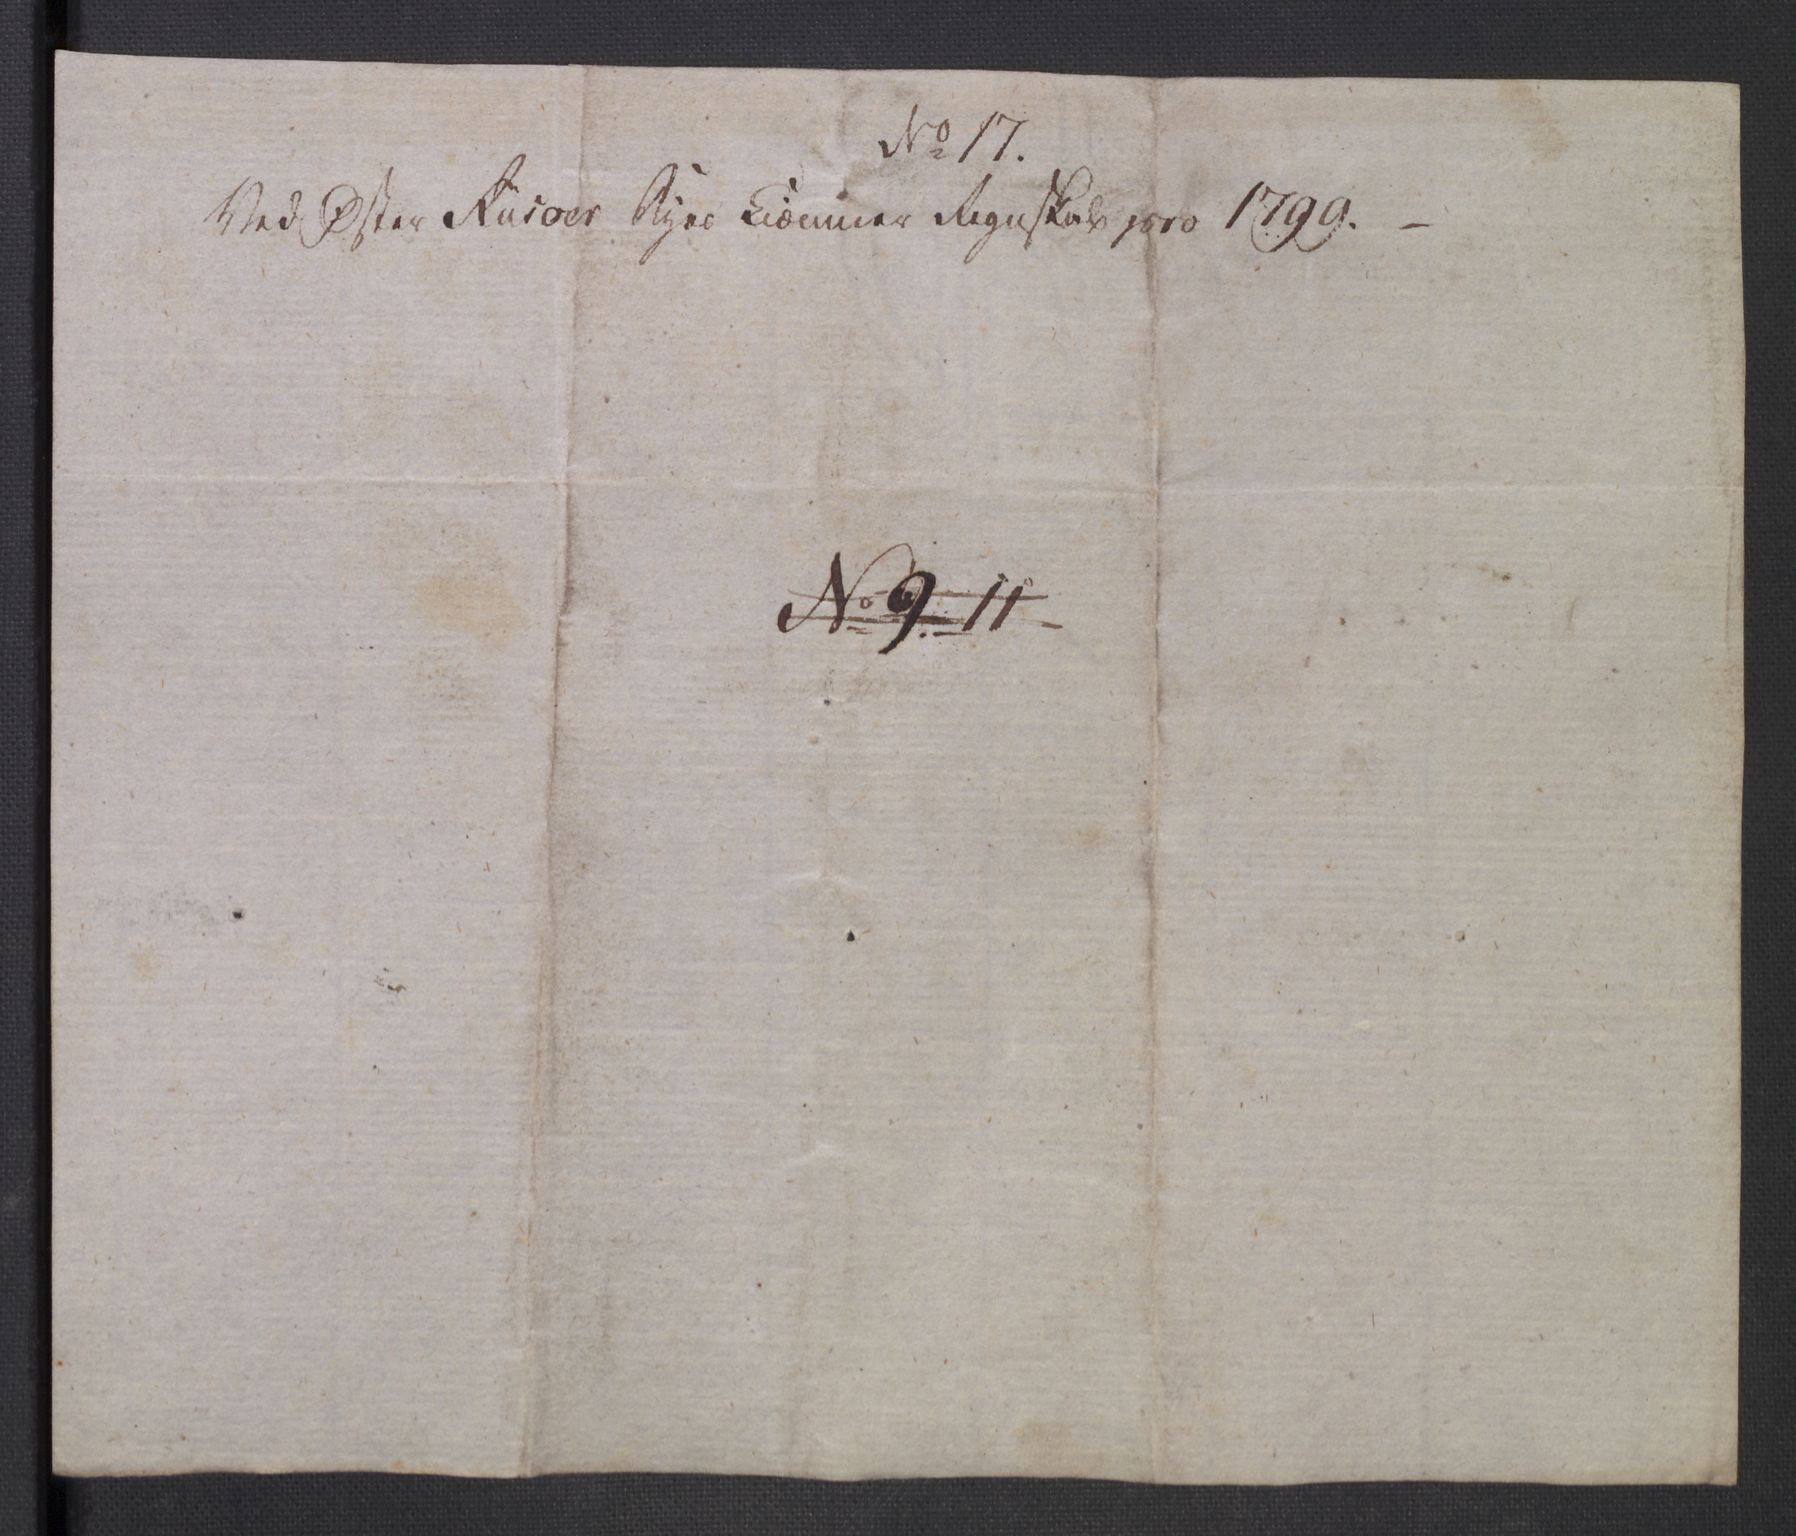 No 17.
Ved Øster Riisoer Byes Kiæmner Regnskab pro 1799. –
No 9. 11 –